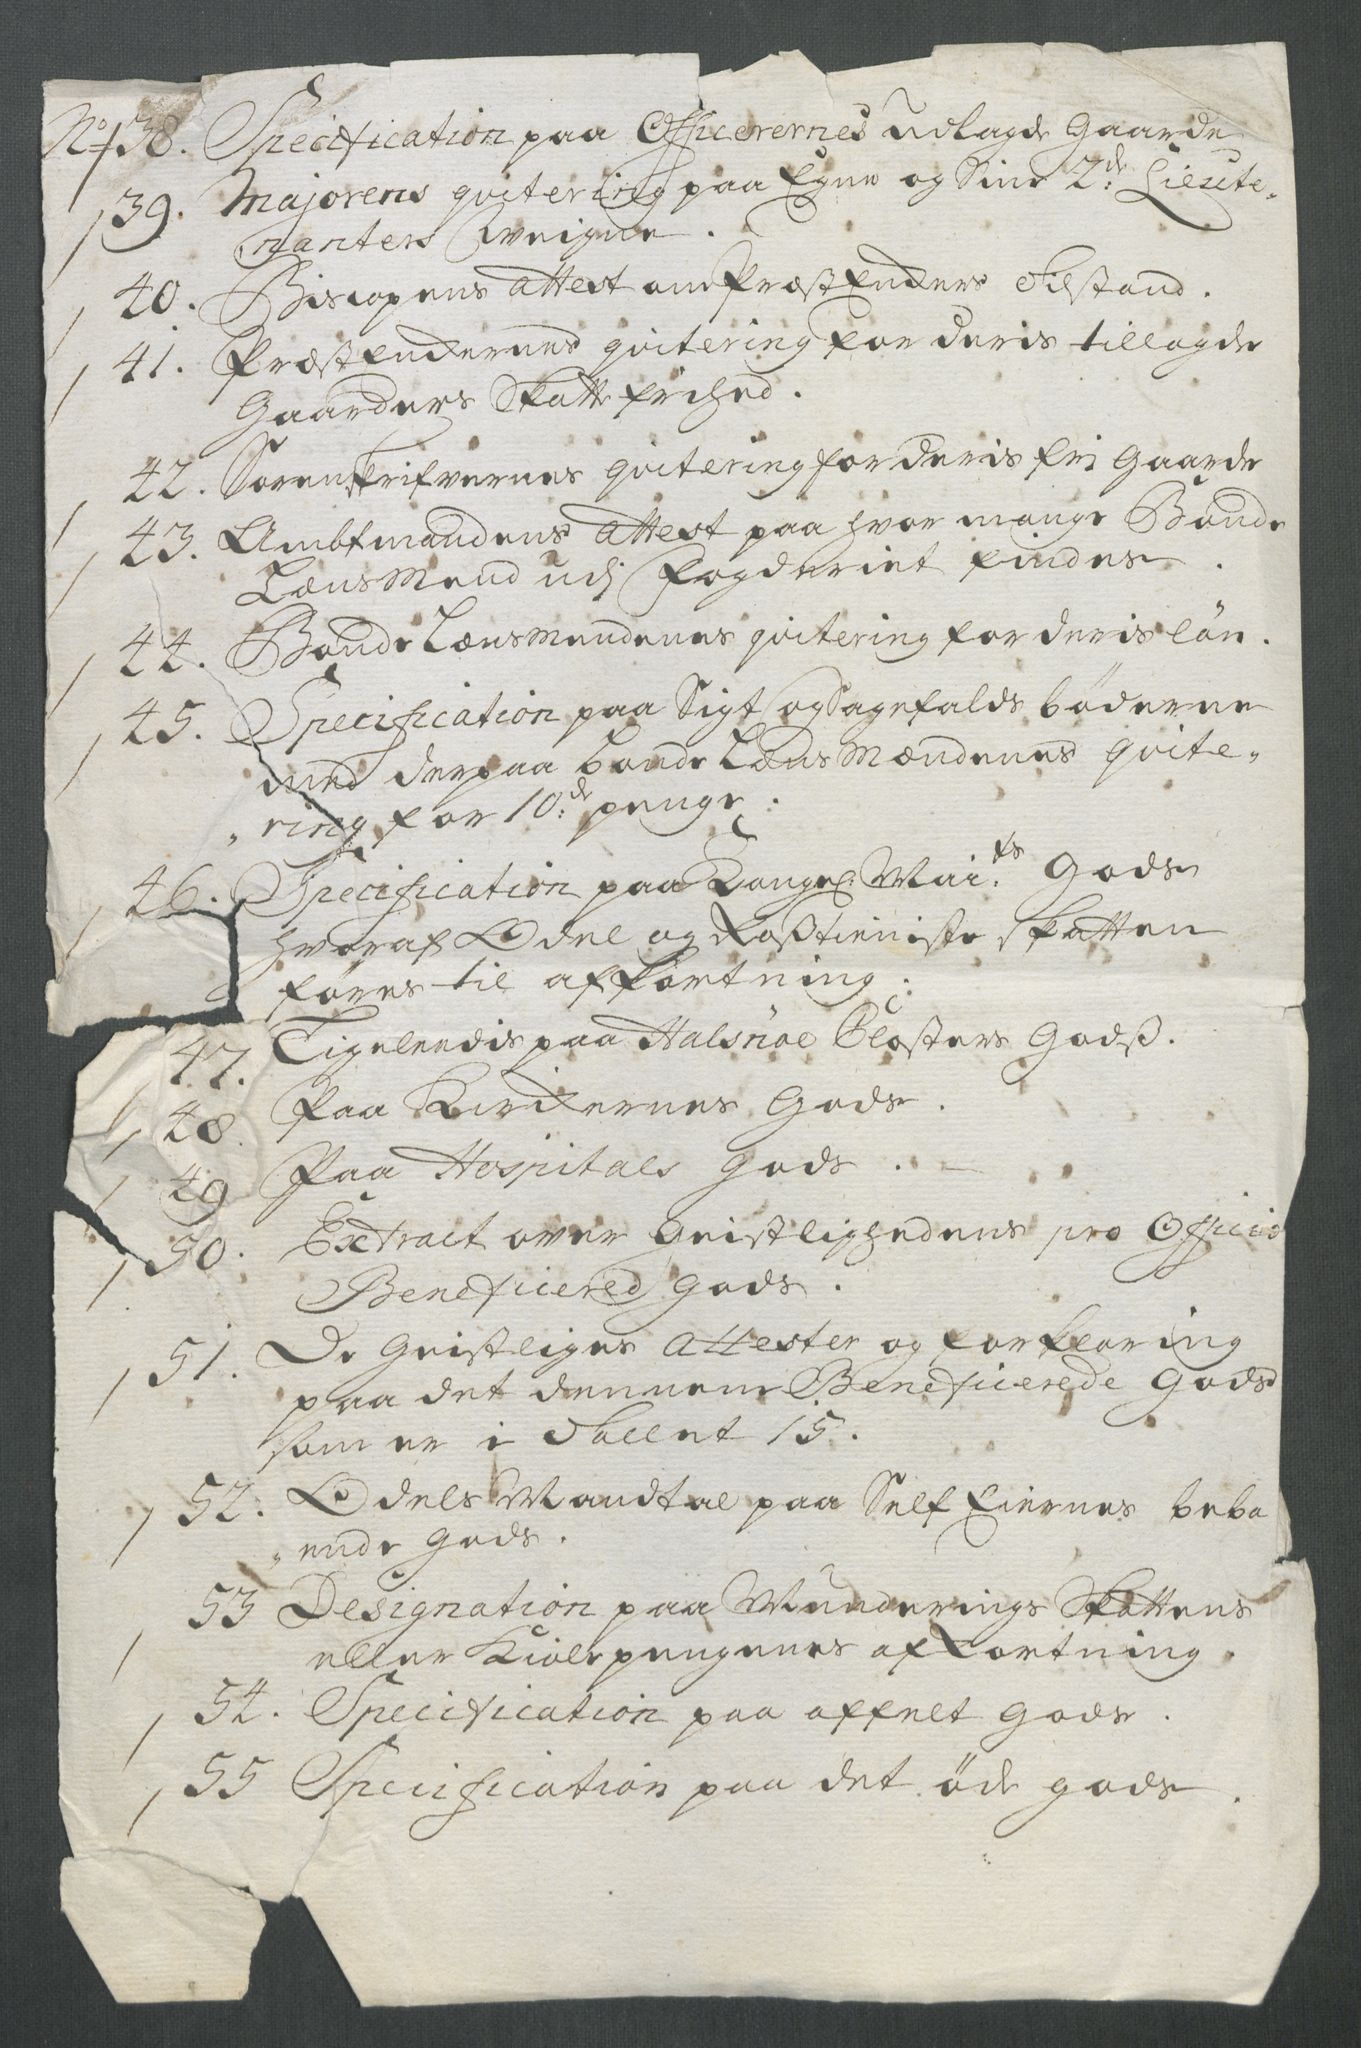 No 38. Specification paa Officerernes udlagde Gaarde
39. Majorens qvitering paa Egne og Sine 2de Lieute-
nanters Weigne.
40. Biscopens attest om Præst Enckers tilstand.
41. Præst Enckernes qvitering for deris tillagde
Gaarders Skatte frihed.
42. Sorenskrifvernes qvitering for deris fri Gaarde
43. Ambtmandens attest paa hvor mange Bonde
LænsMend udj Fogderiet findes.
44. Bonde Lænsmendenes qvitering for deris løn.
45. Specification paa Sigt og Sagefalds bøderne
med derpaa bonde LænsMændenes qvite-
ring for 10de penge.
46. Specification paa Kongel. Mai.ts Gods
hvoraf Odel og Rostieniste skatten
føres til afkortning.
47. Ligeledis paa Halsnøe Closters Godß.
48. Paa Kirckernes Gods.
49 Paa Hospitals Gods.
50. Extract over Geistlighedens pro Officio
Beneficered Gods.
51. De Geistliges Attester og forklaring
paa det dennem Beneficerede Gods
som er i Tallet 15.
52. Odels Mandtal paa Self Eiernes bebo
ende Gods.
53 Designation paa Munderings Skattens
eller Kiolepengenes afKortning.
54. Specification paa affelt Gods.
55 Specification paa det øde gods.